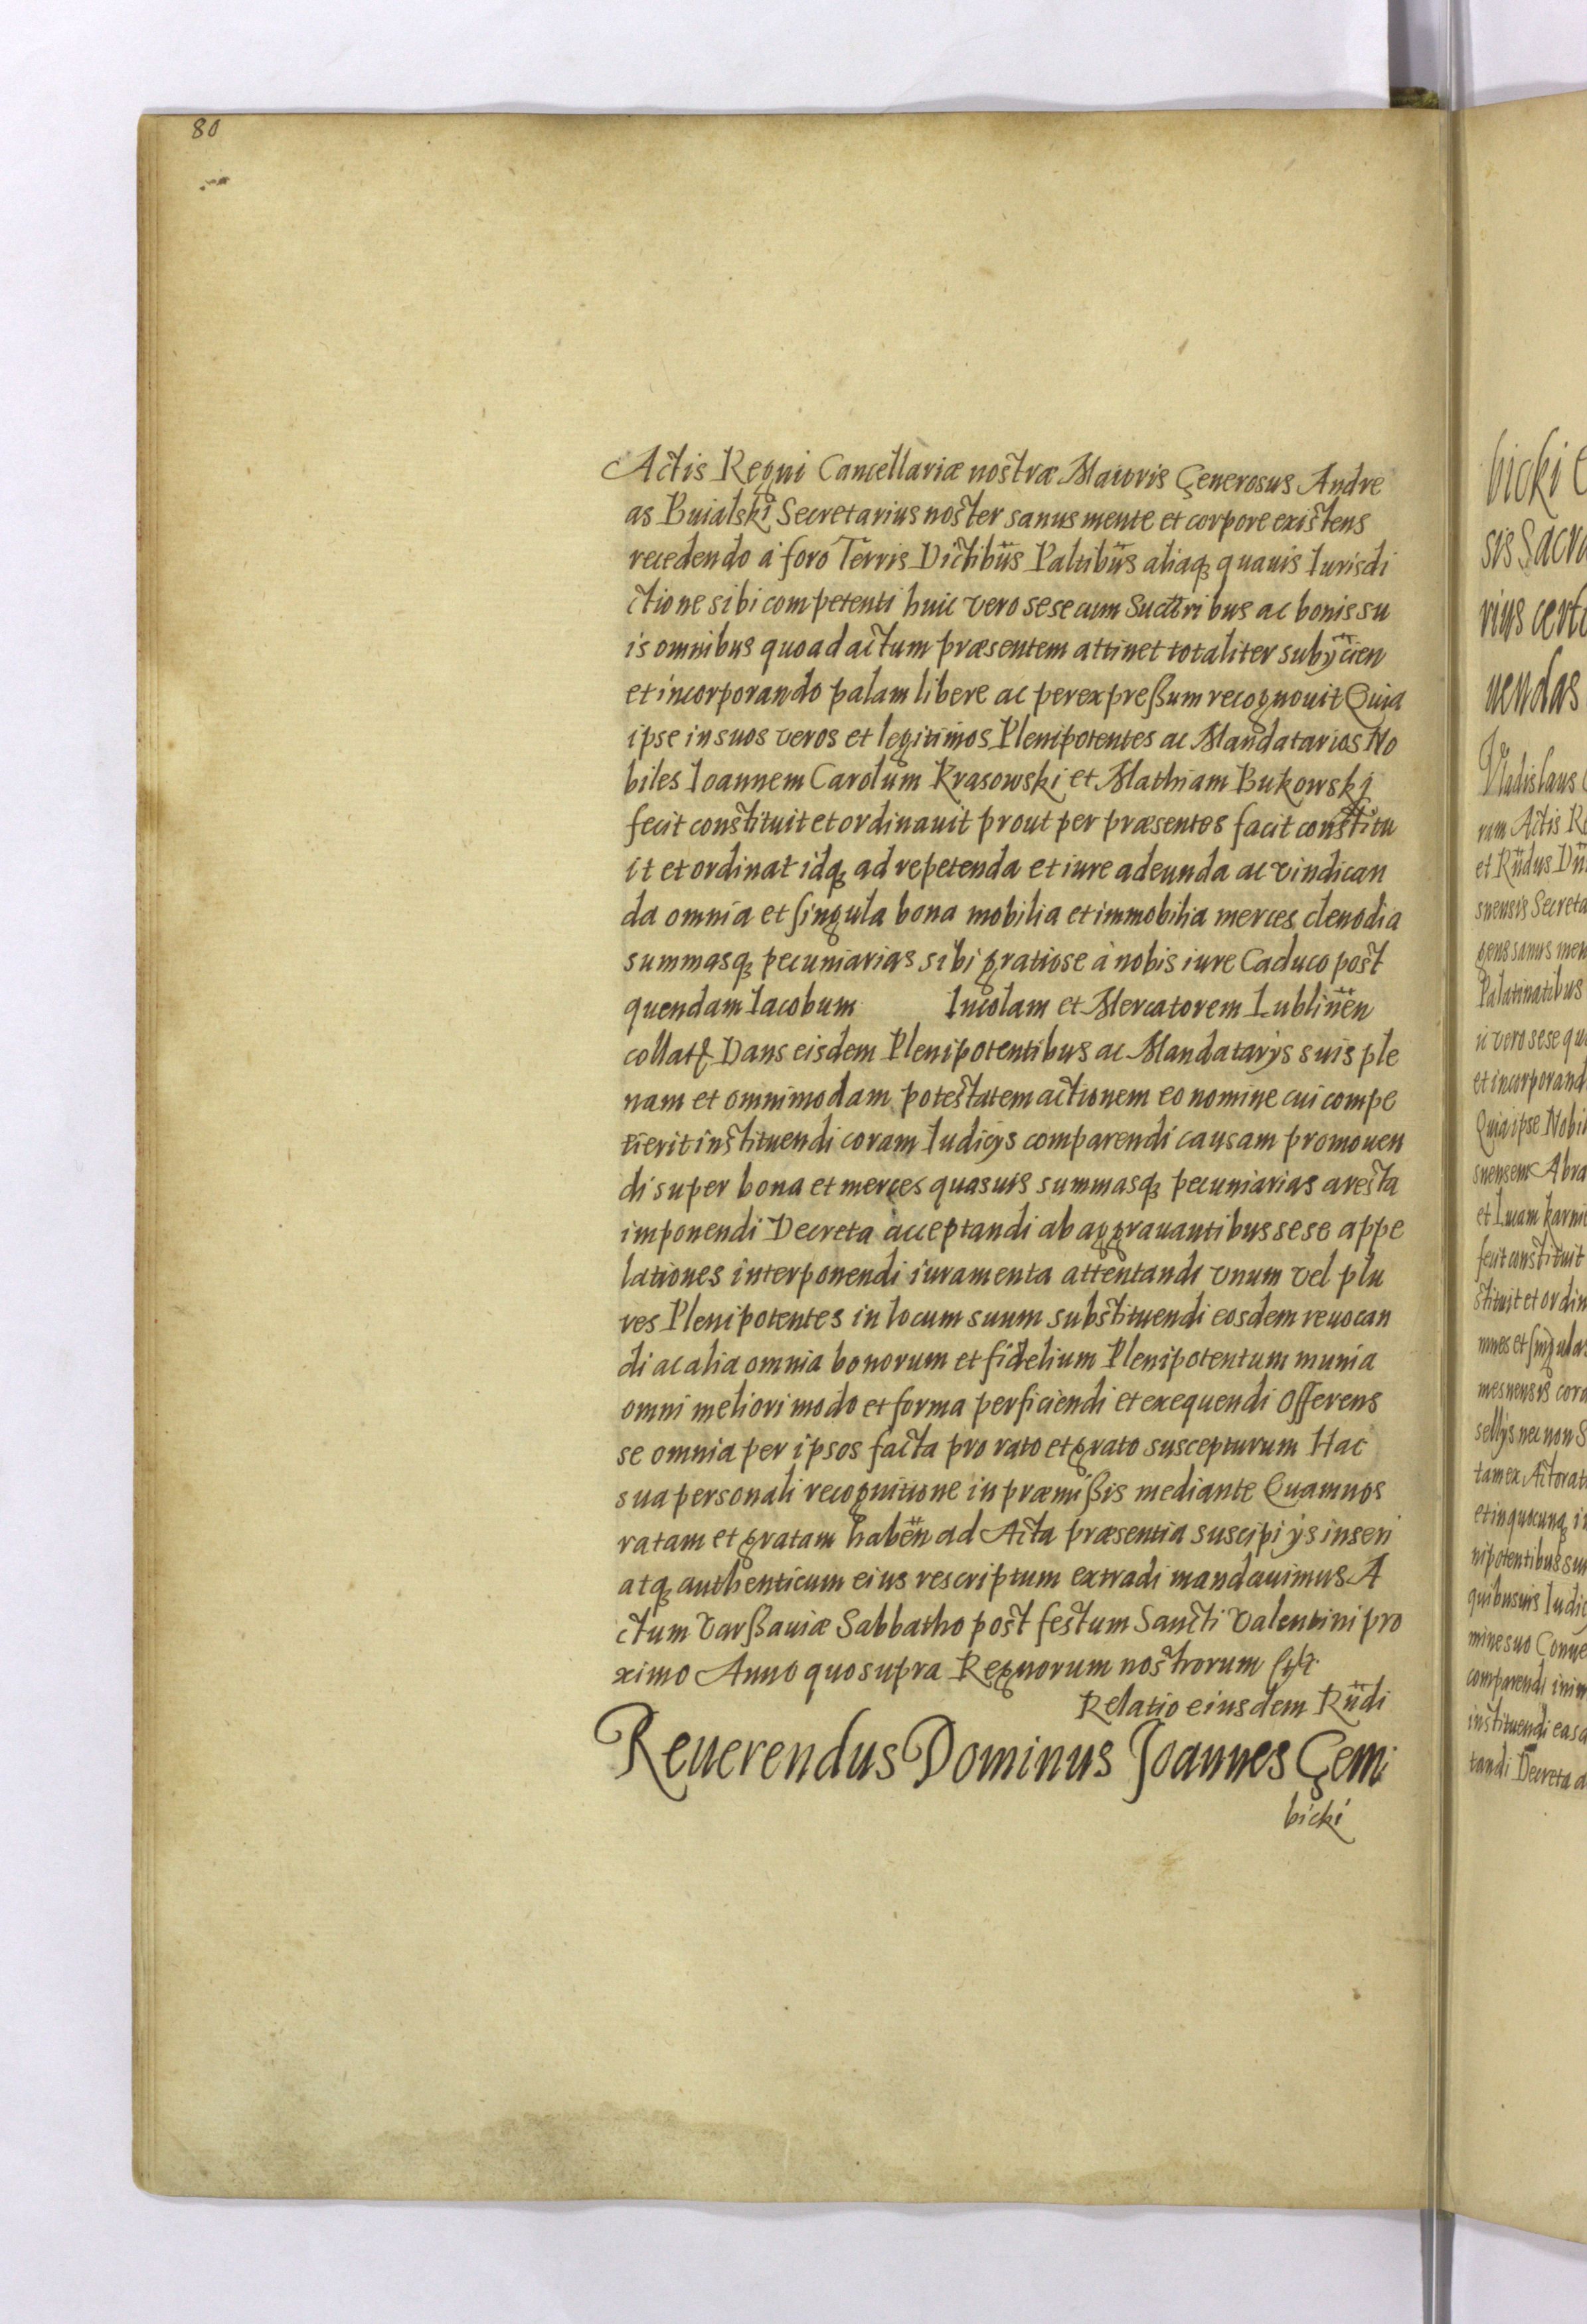 80
Actis Regni Cancellariæ nostræ Maioris Generosus Andre
as Buialski Secretarius noster sanus mente et corpore existens
recedendo á foro Terris Dictibus Paltibus aliaq quauis Iurisdi
ctione sibi competenti huic vero sese cum Suctribus ac bonis su
is omnibus quo ad actum præsentem attinet totaliter subÿcien
et incorporando palam libere ac per expreßum recognouit Quia
ipse in suos veros et legitimos Plenipotentes ac Mandatarios No
biles Ioannem Carolum Krasowski et Mathiam Bukowski
fecit constituit et ordinauit prout per præsentes facit constitu
it et ordinat idq ad repetenda et iure adeunda ac vindican
da omnia et singula bona mobilia et immobilia merces clenodia
summasq pecuniarias sibi gratiose à nobis iure Caduco post
quendam Iacobum Incolam et Mercatorem Lublinen
collat Dans eisdem Plenipotentibus ac Mandatarÿs suis ple
nam et omnimodam potestatem actionem eo nomine cui compe
tierit instituendi coram Iudicÿs comparendi causam promouen
di super bona et merces quasuis summasq pecuniarias aresta
imponendi Decreta acceptandi ab aggrauantibus sese appe
lationes interponendi iuramenta attentandi vnum vel plu
res Plenipotentes in locum suum substituendi eosdem reuocan
di ac alia omnia bonorum et fidelium Plenipotentum munia
omni meliori modo et forma perficiendi et exequendi Offerens
se omnia per ipsos facta pro rato et grato suscepturum Hac
sua personali recognitione in præmißis mediante Quam nos
ratam et gratam haben ad Acta præsentia suscipi ÿs inseri
atq authenticum eius rescriptum extradi mandauimus A
ctum Varßauiæ Sabbatho post festum Sancti Valentini pro
ximo Anno quo supra Regnorum nostrorum
Relatio eiusdem Rndi
Reuerendus Dominus Joannes Gem
bicki
bicki
sis Sacra
rius
uendas
Vladislaus
ram Actis
et Rndus
snensis Secreta
gens sanus men
Palatinatibus
ic vero sese
et incorporand
Quia ipse Nobi
snensem Abra
et
fecit constituit
stituit et ordin
mnes et singulas
mesnensis cora
sellÿs nec non
tam ex Actorat
et in quacunq
nipotentibus su
quibusuis Iudic
mine suo Conue
comparendi
instituendi eas
tandi Decreta a